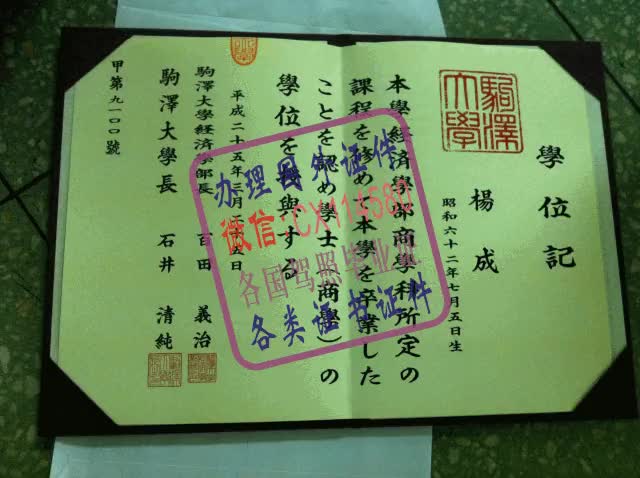 學位記
駒澤大學
楊成
昭和六十二年七月五日生
本學經済學部商學科所定の
課程を修め本學を卒業した
ことを認め學士(商學)の
學位を授與する
平成二十五年三月二十五日
駒澤大學経済學部長 百田 義治
駒澤大學長 石井 清純
甲第九一〇〇號
办理国外证件
微信:CX114580
各国驾照毕业证
各类证书证件